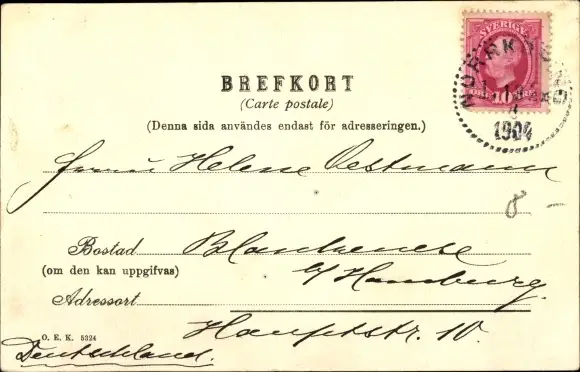 SVERIGE
10
NORRKÖPING
1904
BREFKORT
(Carte postale)
(Denna sida användes endast för adresseringen.)
Helene Oestmann
8 –
Bostad Blankenese
(om den kan uppgifvas)
b/ Hamburg.
Adressort
Hauptstr. 10.
O. E. K. 5324
Deutschland.